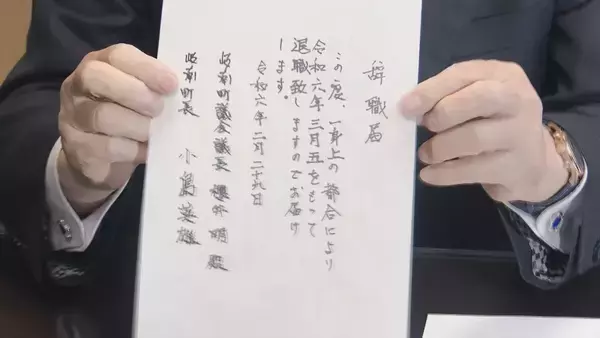 辞職届
この度、一身上の都合により
令和六年三月五をもって
退職致しますのでお届け
します。
令和六年二月二十九日
岐南町議会議長 櫻井明 殿
岐南町長 小島英雄